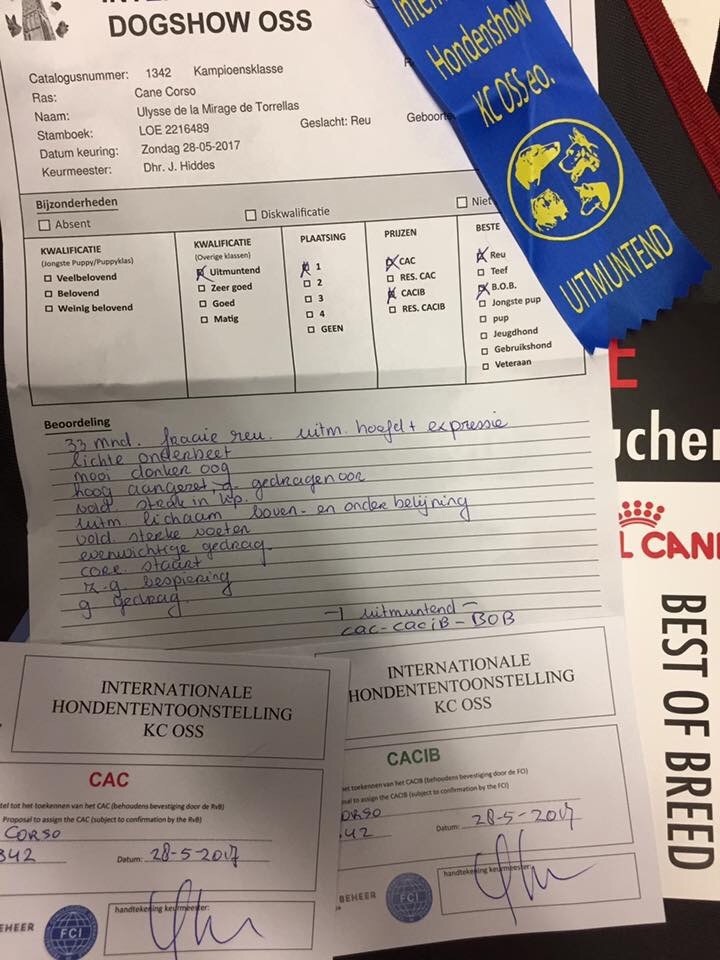 DOGSHOW OSS
Catalogusnummer: 1342 Kampioensklasse
Ras: Cane Corso
Naam: Ulysse de la Mirage de Torrellas
Stamboek: LOE 2216489 Geslacht: Reu Geboorte
Datum keuring: Zondag 28-05-2017
Keurmeester: Dhr. J. Hiddes
Hondenshow
KC OSS eo.
UITMUNTEND
Bijzonderheden
Absent Diskwalificatie Niet
KWALIFICATIE
(Jongste Puppy/Puppyklas)
Veelbelovend
Belovend
Weinig belovend
KWALIFICATIE
(Overige klassen)
Uitmuntend
Zeer goed
Goed
Matig
PLAATSING
1
2
3
4
GEEN
PRIJZEN
CAC
RES. CAC
CACIB
RES. CACIB
BESTE
Reu
Teef
B.O.B.
Jongste pup
pup
Jeugdhond
Gebruikshond
Veteraan
Beoordeling
33 mnd. fraaie reu. uitm. hoofd + expressie
lichte onderbeet
mooi donker oog
hoog aangezet g. gedragen oor
vold. sterk in
uitm. lichaam boven- en onder belijning
vold. sterke voeten
evenwichtige gedrag
corr. staart
z.g bespiering
g gedrag
1 uitmuntend
CAC-CACIB-BOB
INTERNATIONALE
HONDENTENTOONSTELLING
KC OSS
CAC
tel tot het toekennen van het CAC (behoudens bevestiging door de RvB)
Proposal to assign the CAC (subject to confirmation by the RvB)
CORSO
342 Datum: 28-5-2017
handtekening keurmeester:
EHEER
FCI
INTERNATIONALE
HONDENTENTOONSTELLING
KC OSS
CACIB
het toekennen van het CACIB (behoudens bevestiging door de FCI)
osal to assign the CACIB (subject to confirmation by the FCI)
ORSO
42 Datum: 28-5-2017
handtekening keurmeester:
BEHEER
FCI
E
ucher
L CANI
BEST OF BREED